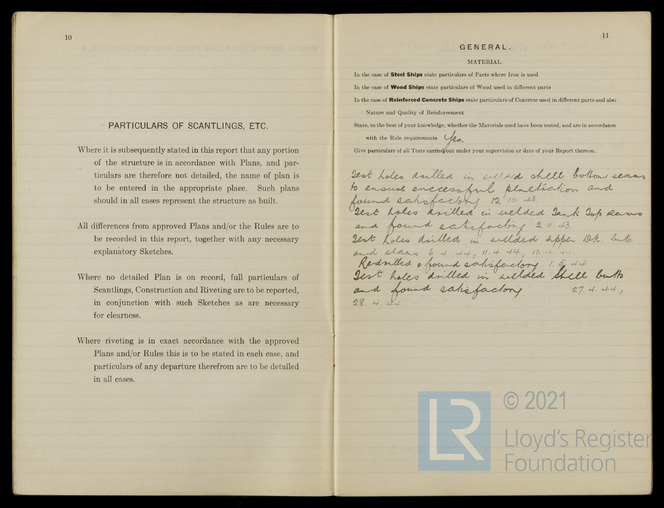 10
PARTICULARS OF SCANTLINGS, ETC.
Where it is subsequently stated in this report that any portion
of the structure is in accordance with Plans, and par-
ticulars are therefore not detailed, the name of plan is
to be entered in the appropriate place. Such plans
should in all cases represent the structure as built.
All differences from approved Plans and/or the Rules are to
be recorded in this report, together with any necessary
explanatory Sketches.
Where no detailed Plan is on record, full particulars of
Scantlings, Construction and Riveting are to be reported,
in conjunction with such Sketches as are necessary
for clearness.
Where riveting is in exact accordance with the approved
Plans and/or Rules this is to be stated in each case, and
particulars of any departure therefrom are to be detailed
in all cases.
11
GENERAL.
MATERIAL.
In the case of Steel Ships state particulars of Parts where Iron is used
In the case of Wood Ships state particulars of Wood used in different parts
In the case of Reinforced Concrete Ships state particulars of Concrete used in different parts and also
Nature and Quality of Reinforcement
State, to the best of your knowledge, whether the Materials used have been tested, and are in accordance
with the Rule requirements Yes.
Give particulars of all Tests carried out under your supervision or date of your Report thereon.
Test holes drilled in welded shell bottom seams
to ensure successful penetration and
found satisfactory 12.10.43.
Test holes drilled in welded Tank Top seams
and found satisfactory 2.11.43.
Test holes drilled in welded upper Dk. butts
and seams 6.4.44, 11.4.44,
Redrilled & found satisfactory 1.5.44
Test holes drilled in welded shell butts
and found satisfactory 27.4.44,
28.4.44
© 2021
LR
Lloyd's Register
Foundation